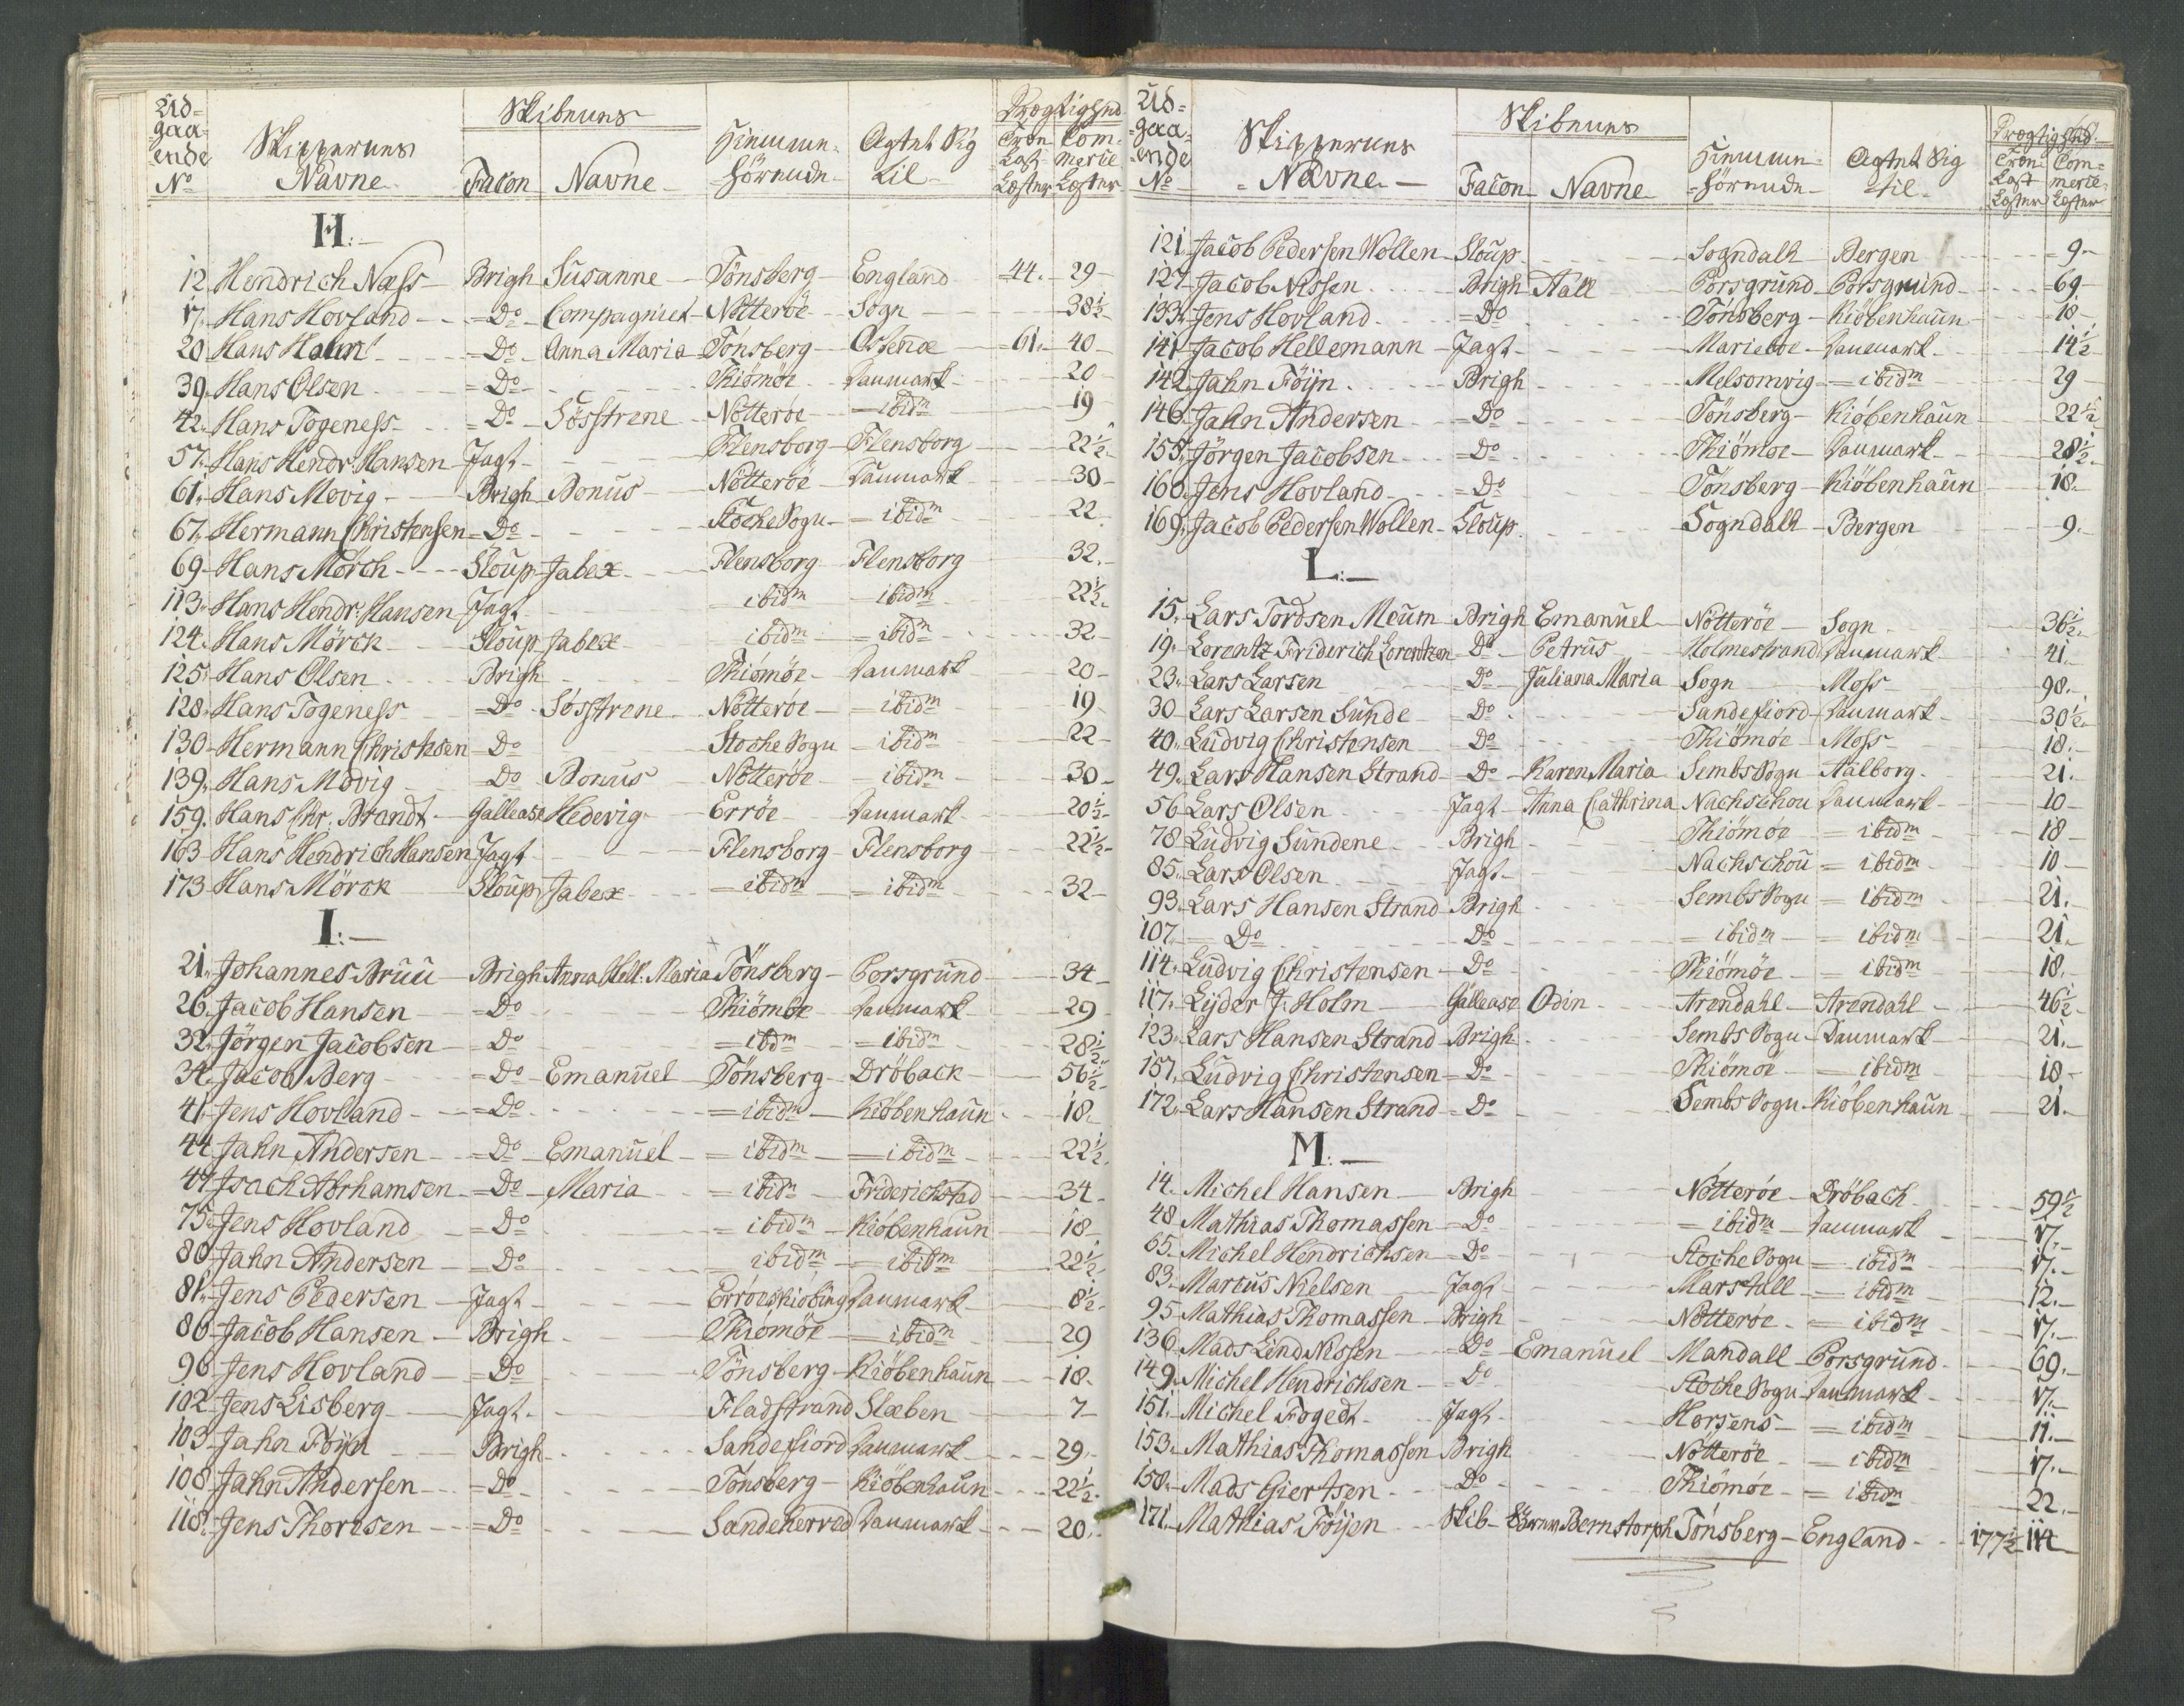 Ud= Skibenes Drægtighed
gaa= Skippernes Hiemme= Agtet Sig Træ= Com=
ende Last mercie
No Navne Facon Navne hörende til Læster Læster
H:
12 Hendrich Næss Brigh Susanne Tönsberg England 44. 29
17. Hans Hovland Do Compagniet Nötteröe Sogn 38½
20 Hans Haun Do Anna Maria Tönsberg Ostende 61. 40
39. Hans Olsen Do Thiömöe Danmark 20
42. Hans Togeness Do Sösstrene Nötteröe ibidm 19
57. Hans Hendr. Hansen Jagt Flensborg Flensborg 22½
61. Hans Movig Brigh Bonus Nötteröe Danmark 30
67. Hermann Christensen Do Stocke Sogn ibidm 22
69. Hans Mörch Sloup Jabex Flensborg Flensborg 32.
113. Hans Hendr. Hansen Jagt ibidm ibidm 22½
124. Hans Mörck Sloup Jabex ibidm ibidm 32.
125. Hans Olsen Brigh Thiömöe Danmark 20
128. Hans Togeness Do Sösstrene Nötteröe ibidm 19
130 Hermann Christensen Do Stocke Sogn ibidm 22
139. Hans Movig Do Bonus Nötteröe ibidm 30
159. Hans Chr. Brandt Gallease Hedevig Erröe Danmark 20½
163 Hans Hendrich Hansen Jagt Flensborg Flensborg 22½
173 Hans Mörck Sloup Jabex ibidm ibidm 32
I:
21. Johannes Bruu Brigh Anna Hell: Maria Tönsberg Porsgrund 34
26. Jacob Hansen Do Thiömöe Danmark 29
32. Jörgen Jacobsen Do ibdm ibidm 28½
34. Jacob Berg Do Emanuel Tönsberg Dröback 56½
41. Jens Hovland Do ibidm Kiöbenhaun 18
44 Jahn Andersen Do Emanuel ibidm ibidm 22½
47 Isach Abrhamsen Do Maria ibidm Friderichstad 34
75. Jens Hovland Do ibidm Kiöbenhaun 18
80 Jahn Andersen Do ibidm ibidm 22½
81. Jens Pedersen Jagt Erröeskiöbing Danmark 8½
86 Jacob Hansen Brigh Thiömöe ibidm 29
96 Jens Hovland Do Tönsberg Kiöbenhaun 18
102 Jens Lisberg Jagt Fladstrand Slæben 7
103 Jahn Föyn Brigh Sandefiord Danmark 29
108 Jahn Andersen Do Tönsberg Kiöbenhaun 22½
118. Jens Thoresen Do Sandeherred Danmark 20
Ud= Skibenes Drægtighed
gaa= Skippernes Hiemme= Agtet Sig Træ= Com=
ende Last mercie
No Navne Facon Navne hörende til Læster Læster
121. Jacob Pedersen Wollen Sloup Sogndall Bergen 9
127 Jacob Nissen Brigh Aall Porsgrund Porsgrund 69
133. Jens Hovland Do Tönsberg Kiöbenhaun 18
141 Jacob Hellemann Jagt Marieboe Danmark 14½
142 Jahn Föijn Brigh Melsomvig ibidm 29
146. Jahn Andersen Do Tönsberg Kiöbenhaun 22½
155. Jörgen Jacobsen Do Thiömoe Danmark 28½
160. Jens Hovland Do Tönsberg Kiöbenhaun 18
169. Jacob Pedersen Wollen Sloup Sogndall Bergen 9.
L:
15. Lars Tordsen Meum Brigh Emanuel Nötteröe Sogn 36½
19. Lorentz Friderich Lorentzen Do Petrus Holmestrand Danmark 41.
23. Lars Larsen Do Juliana Maria Sogn Moss 98.
30 Lars Larsen Sunde Do Sandefiord Danmark 30½
40. Ludvig Christensen Do Thiömöe Moss 18.
49. Lars Hansen Strand Do Karen Maria Sembs Sogn Aalborg 21.
56 Lars Olsen Jagt Anna Cathrina Nachschou Danmark 10
78 Ludvig Sundene Brigh Thiömöe ibidm 18
85. Lars Olsen Jagt Nachschou ibidm 10
93. Lars Hansen Strand Brigh Sembs Sogn ibidm 21.
107. Do Do ibidm ibidm 21.
114. Ludvig Christensen Do Thiömöe ibidm 18.
117. Lyder J. Holm Gallease Odin Arendahl Arendahl 46½
123. Lars Hansen Strand Brigh Sembs Sogn Danmark 21.
157. Ludvig Christensen Do Thiömöe ibidm 18
172. Lars Hansen Strand Do Sembs Sogn Kiöbenhaun 21.
M:
14. Michel Hansen Brigh Nötteröe Dröbach 59½
48 Mathias Thomassen Do ibidm Danmark 17.
65. Michel Hendrichsen Do Stocke Sogn ibidm 17.
83. Marcus Nielsen Jagt Marstall ibidm 12.
95 Mathias Thomassen Brigh Nötteröe ibidm 17.
136 Mads Lind Nissen Do Emanuel Mandall Porsgrund 69.
149. Michel Hendrichsen Do Stocke Sogn Danmark 17.
151. Michel Fogedt Jagt Horsens ibidm 11.
153. Mathias Thomassen Brigh Nötteröe ibidm 17.
158. Mads Giertsen Do Thiömöe ibidm 22.
171. Mathias Föijen Skib Bernstorph Tönsberg England 177½ 114